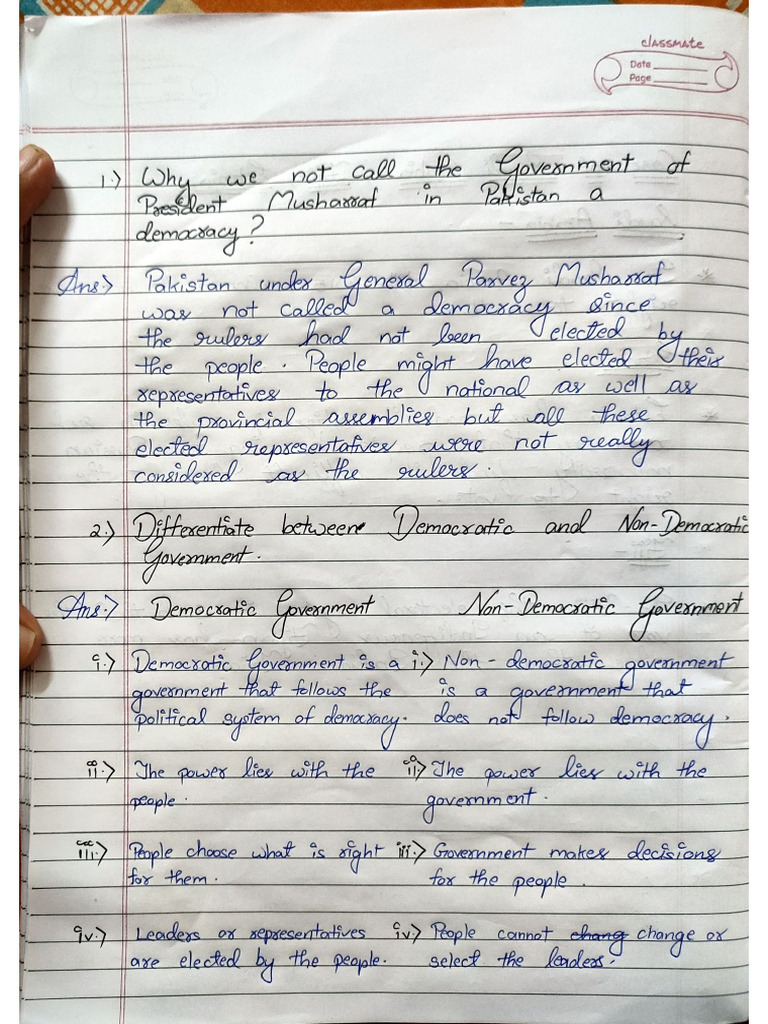 classmate
Date
Page
1.) Why we not call the Government of
President Musharraf in Pakistan a
democracy?
Ans:) Pakistan under General Parvez Musharraf
was not called a democracy since
the rulers had not been elected by
the people. People might have elected their
representatives to the national as well as
the provincial assemblies but all these
elected representatives were not really
considered as the rulers.
2.) Differentiate between Democratic and Non-Democratic
Government.
Ans:) Democratic Government Non-Democratic Government
i.) Democratic Government is a i.) Non-democratic government
government that follows the is a government that
political system of democracy. does not follow democracy.
ii.) The power lies with the ii) The power lies with the
people. government.
iii.) People choose what is right iii.) Government makes decisions
for them. for the people.
iv.) Leaders or representatives iv.) People cannot chang change or
are elected by the people. select the leaders.